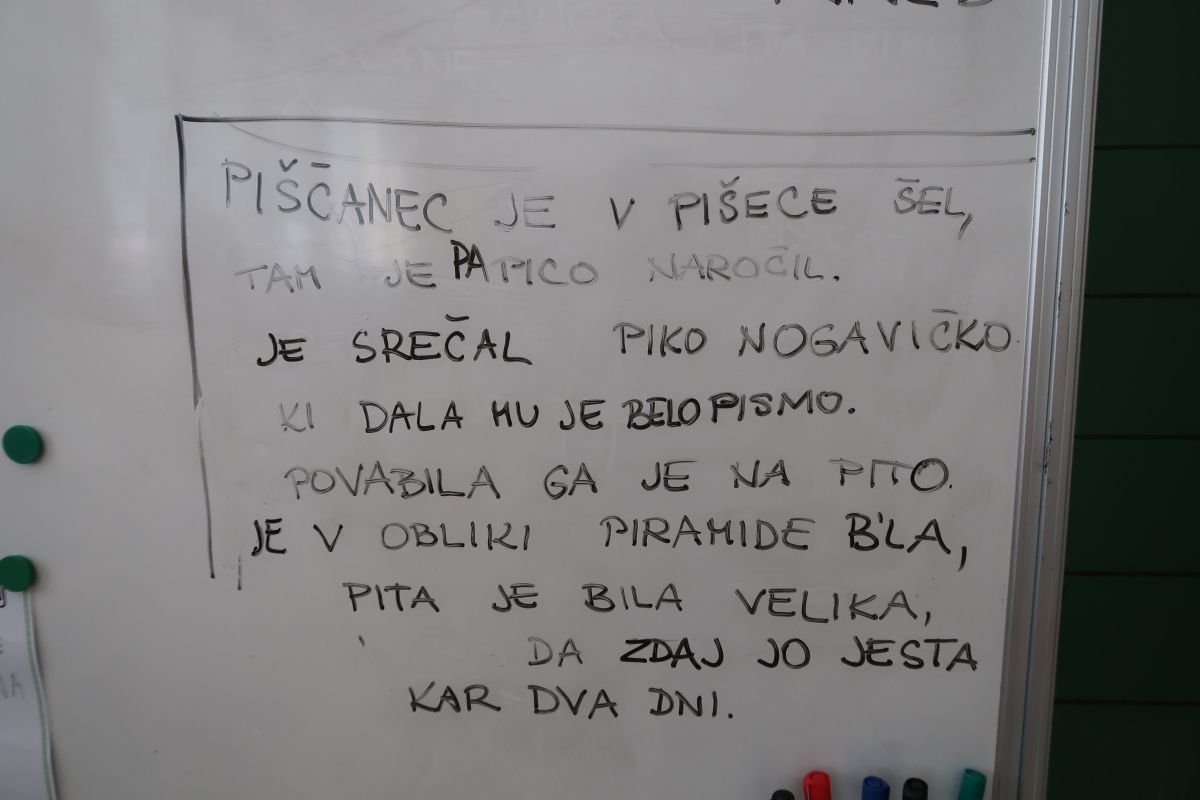 PIŠČANEC JE V PIŠECE ŠEL,
TAM JE PA PICO NAROČIL.
JE SREČAL PIKO NOGAVIČKO
KI DALA MU JE BELO PISMO.
POVABILA GA JE NA PITO.
JE V OBLIKI PIRAMIDE B'LA,
PITA JE BILA VELIKA,
DA ZDAJ JO JESTA
KAR DVA DNI.